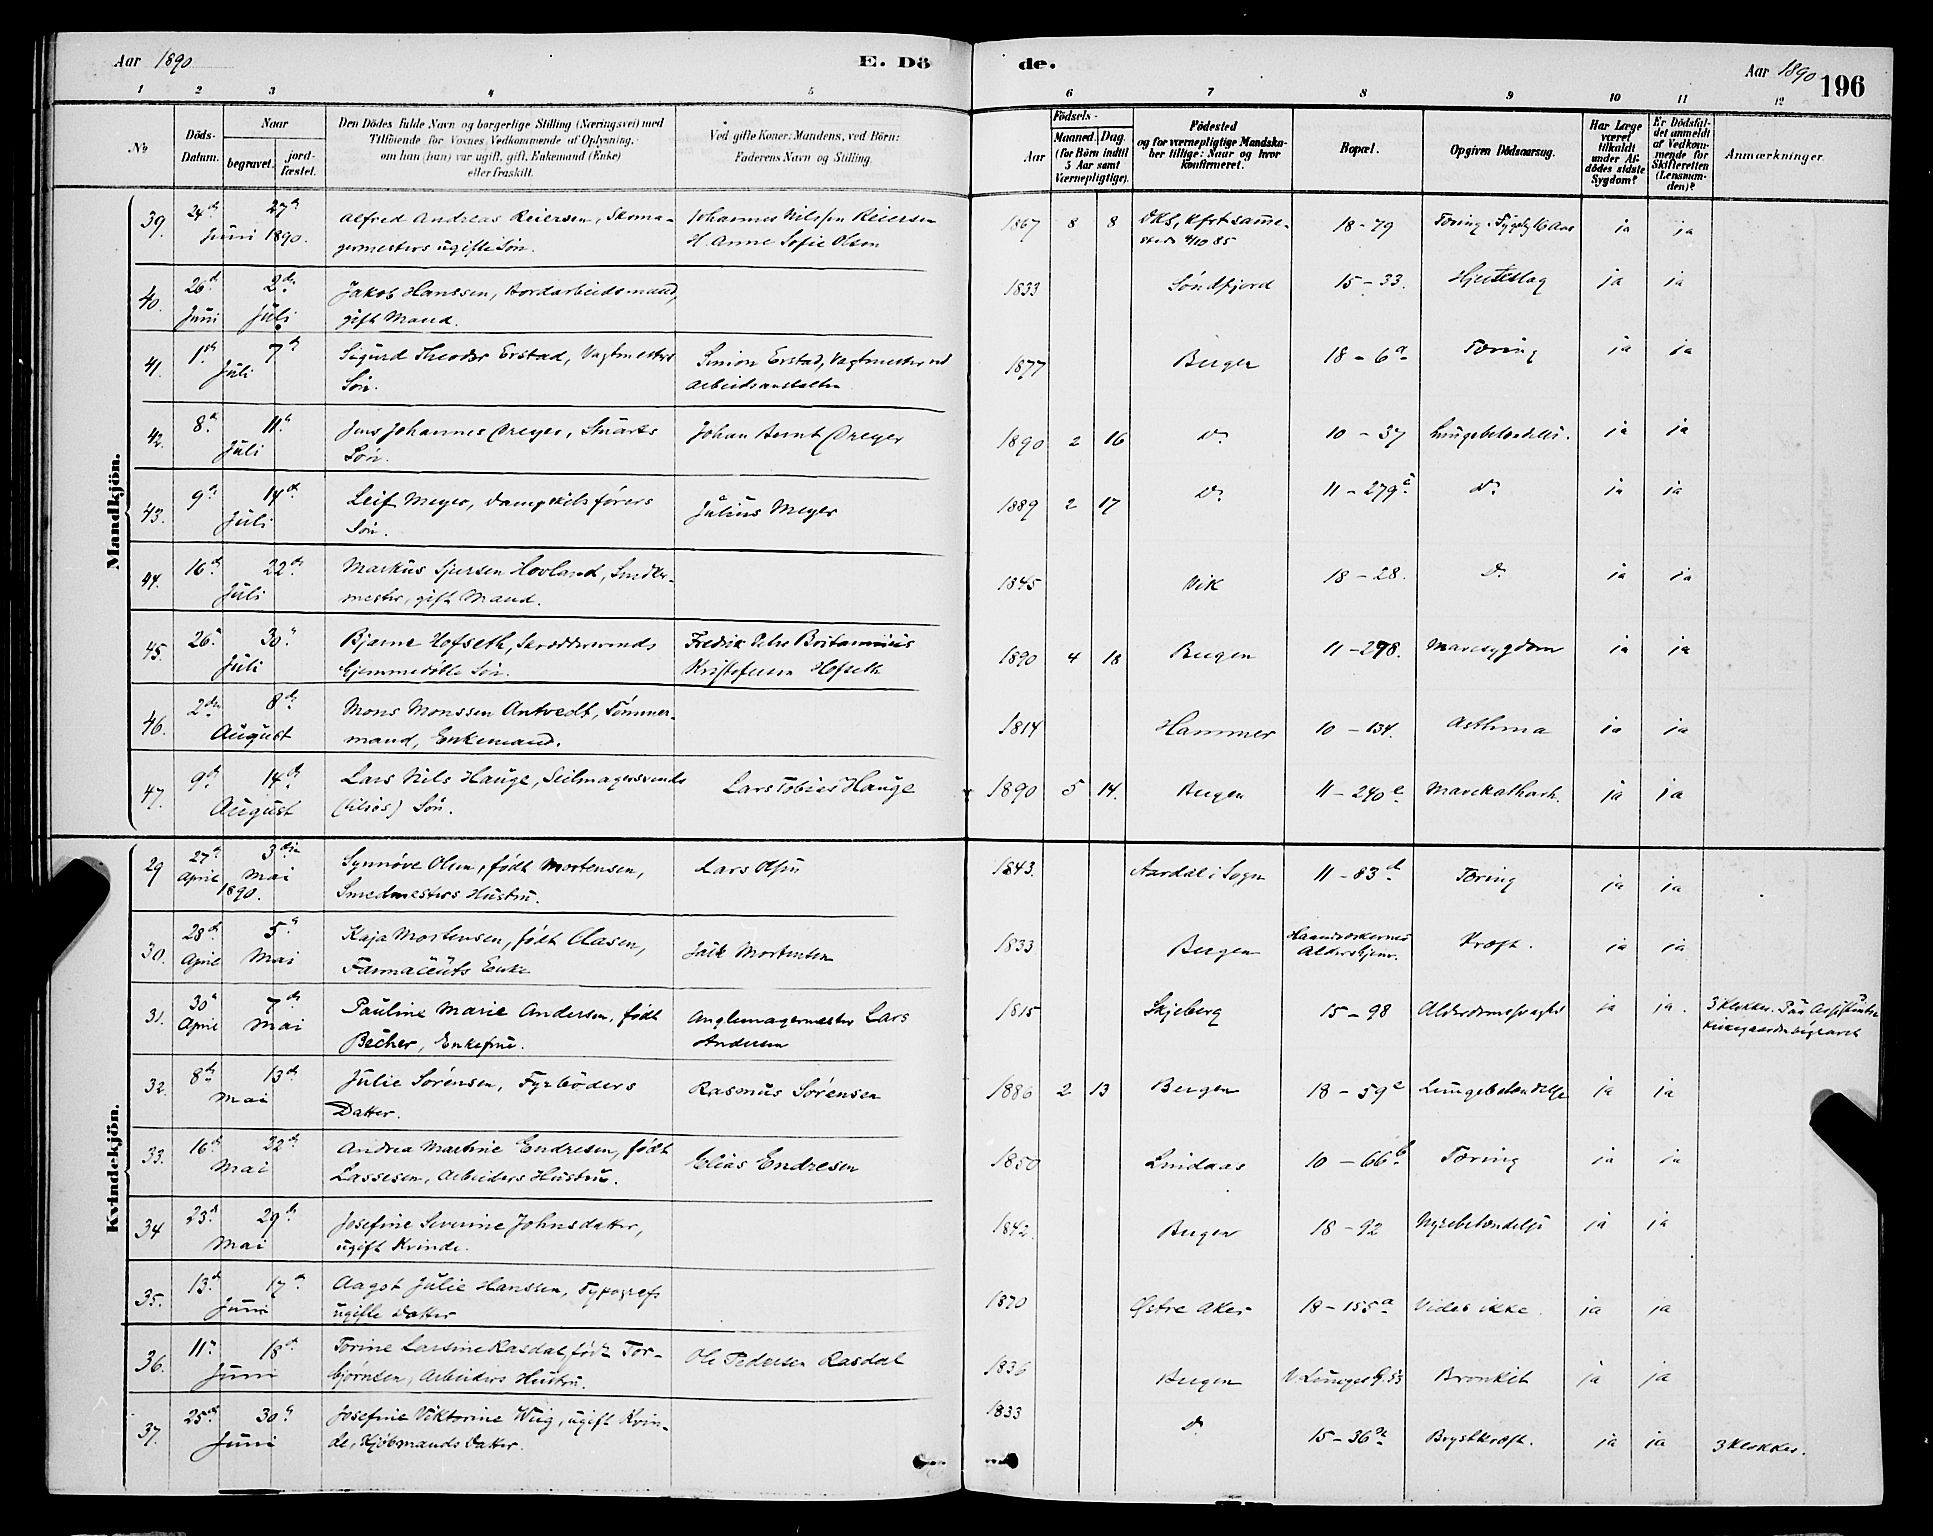 Aar 1890 E. Dö de. Aar 1890 196
1 2 3 4 5 6 7 8 9 10 11 12
No
Döds-Datum.
Naar
begravet. jordfæstet.
Den Dödes fulde Navn og borgerlige Stilling (Næringsvei) med
Tilföiende for Voxnes Vedkommende af Oplysning,
om han (hun) var ugift, gift, Enkemand (Enke)
eller fraskilt.
Ved gifte Koner: Mandens, ved Börn:
Faderens Navn og Stilling.
Födsels-
Aar Maaned. Dag.
(for Börn indtil
5 Aar samt
Værnepligtige).
Födested
og for værnepligtige Mandska-
ber tillige: Naar og hvor
konfirmeret.
Bopæl.
Opgiven Dödsaarsag.
Har Læge
været
tilkaldt
under Af-
dödes sidste
Sygdom?
Er Dödsfal-
det anmeldt
af Vedkom-
mende for
Skifteretten
(Lensman-
den)?
Anmærkninger.
Mandkjön.
39. 24de 27de Alfred Andreas Reiersen, Skoma- Johannes Nilssen Reiersen 1867 8 8 18-79 Tæring. ja ja
Juni 1890. germesters ugifte Søn. H. Anne Sofie Olsen
40. 26de 2den Jakob Hanssen, Jordarbeidsmand, 1833 Søndfjord 15-33. Hjerteslag ja ja
Juni Juli gift Mand.
41. 1ste 7de Sigurd Theodor Erstad, Vagtmesters Simon Erstad, Vagtmester ved 1877 Bergen 18-6a Tæring ja ja
Juli Søn. Arbeidsanstalten
42. 8de 11te Jens Johannes Dreyer, Stuarts Johan Bernt Dreyer 1890 2 16 Do 10-37 Lungebetændelse. ja ja
Juli Søn.
43. 9de 14de Leif Meyer, Dampskibsførers Julius Meyer 1889 2 17 Do 11-279c Do ja ja
Juli Søn.
44. 16de 22de Markus Sjursen Hovland, Snedker- 1845 Vik 18-28. Do ja ja
Juli mester, gift Mand.
45. 26de 30te Bjarne Hofseth, Skræddersvends Fredrik Britannius 1890 4 18 Bergen 11-298. Mavesygdom ja ja
Juli Søn. Kristofersen Hofseth
46. 2den 8de Mons Monssen Antvedt, Tømmer- 1814 Hammer 10-134. Asthma ja ja
August mand, Enkemand.
47. 9de 14de Lars Nils Hauge, Seilmagersvends Lars Tobias Hauge 1890 5 14. Bergen 11-240e Mavekatharh. ja ja
August Søn.
Kvindekjön.
29 27de 3die Synnøve Olsen, født Mortensen, Lars Olsen 1843. Aardal i Sogn 11-83d Tæring ja ja
April Mai 1890. Smedmesters Hustru.
30. 28de 5te Kaja Mortensen, født Aasen, Mortensen 1833 Bergen Haandværkernes Kræft. ja ja
April Mai Farmaceuts Enke Aldershjem.
31. 30te 7de Pauline Marie Andersen, født Anglemagermester Lars 1815 Skjeberg 15-98 Alderdomssvaghed ja ja. 3 Klokker. Paa Assistents
April Mai Becher, Enkefrue. Andersen Kirkegaarden begravet
32. 8de 13de Julie Sørensen, Fyrbøders Rasmus Sørensen 1886 2 13 Bergen 18-59e Lungebetændelse ja ja
Mai Datter.
33. 16de 22de Andrea Martine Endresen, født Elias Endresen 1850 Lindaas 10-66b Tæring ja ja
Mai Lassesen, Arbeiders Hustru.
34 23de 29de Josefine Severine Johnsdatter, 1842. Bergen 18-92 Nyrebetændelse ja ja
Mai ugift Kvinde.
35. 13de 17de Aagot Julie Hanssen, Typografs 1870 Østre Aker 18-155a Vides ikke. ja ja
Juni ugifte Datter
36. 11te 18de Torine Larsine Rasdal, født Tor- Ole Pedersen Rasdal 1836 Bergen Bronkit ja ja
Juni bjørnsen, Arbeiders Hustru.
37. 25de 30te Josefine Viktorine Wiig, ugift Kvin- 1833 Do 15-36a Brystkræft. ja ja 3 Klokker.
Juni de, Kjøbmands Datter.